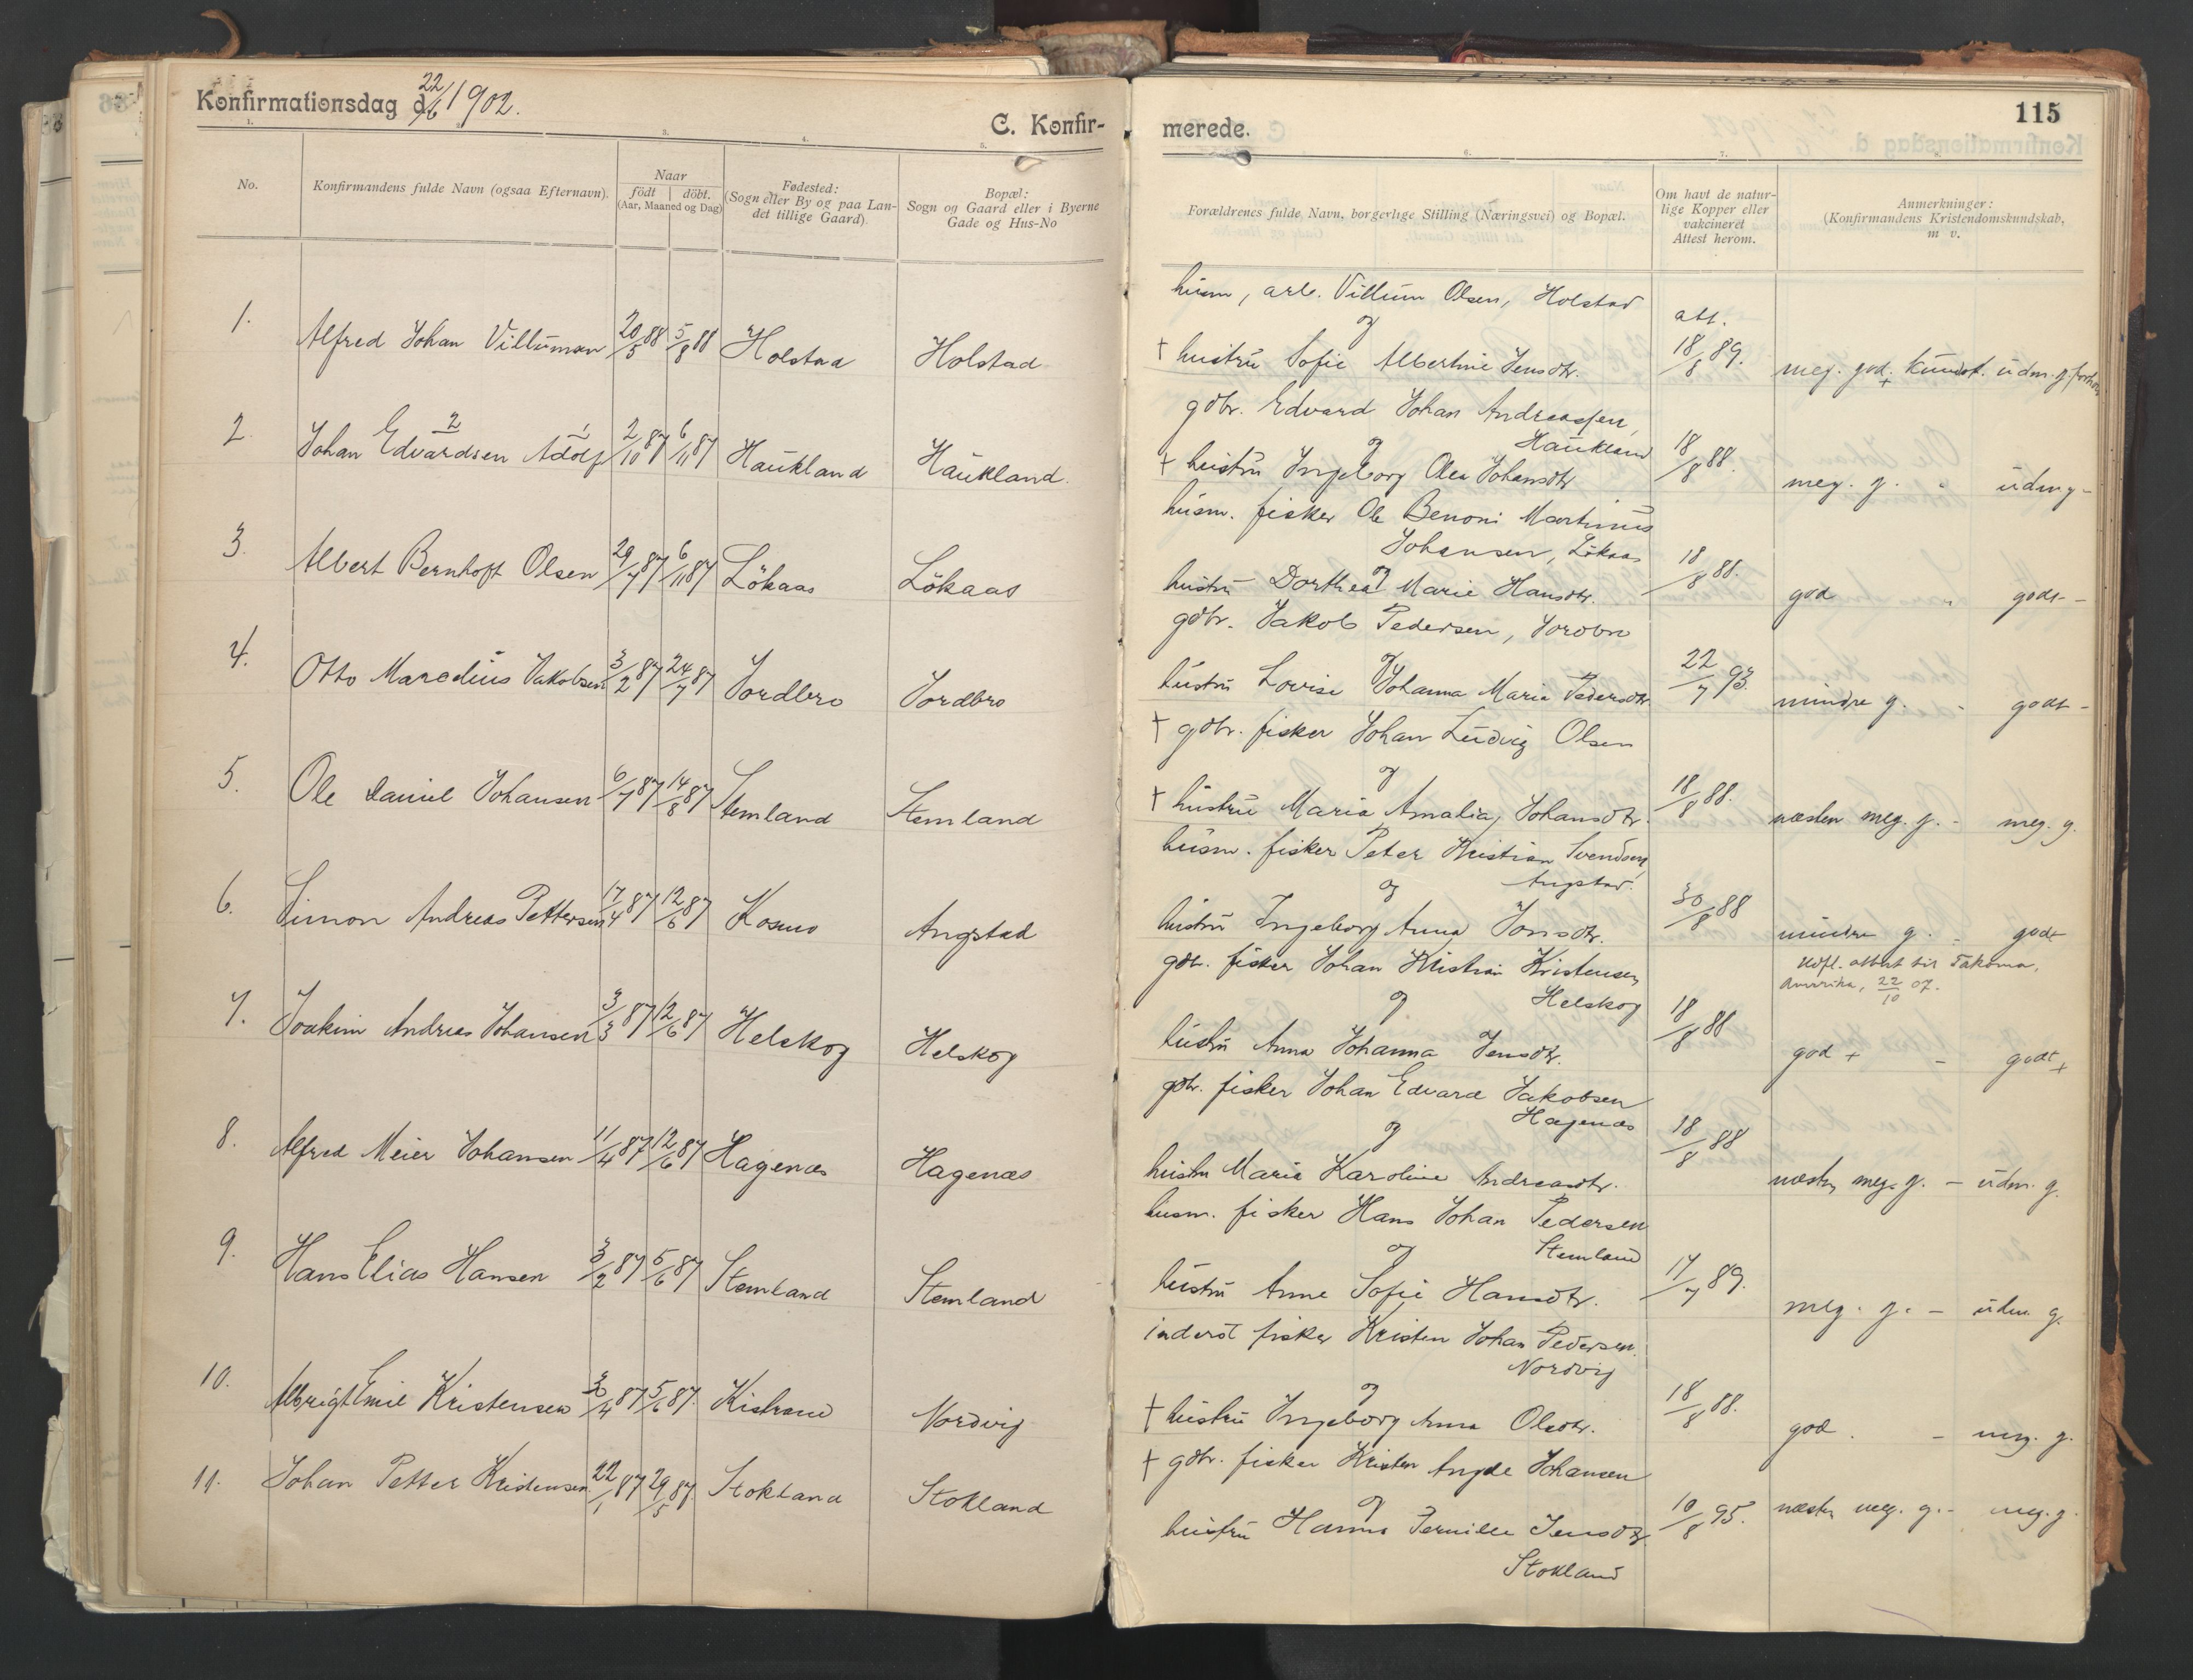 Konfirmationsdag d. 22/6 1902.
C. Konfir-
1.
2.
3.
4.
5.
No.
Konfirmandens fulde Navn (ogsaa Efternavn).
Naar
födt
döbt.
(Aar, Maaned og Dag)
Fødested:
(Sogn eller By og paa Lan-
det tillige Gaard).
Bopæl:
Sogn og Gaard eller i Byerne
Gade og Hus-No
1. Alfred Johan Villumsen 20/5 88 5/8 88 Holstad Holstad
2. Johan Edvardsen Adolf 2/10 87 6/11 87 Haukland Haukland.
2 1
3. Albert Bernhoft Olsen 29/7 87 6/11 87 Lökaas Lökaas
4. Otto Marselius Jakobsen 3/2 87 24/7 87 Jordbro Jordbro
5. Ole Daniel Johansen 6/7 87 14/8 87 Stemland Stemland
6. Simon Andreas Pettersen 17/4 87 12/6 87 Kosmo Angstad
7. Joakim Andreas Johansen 3/3 87 12/6 87 Helskog Helskog
8. Alfred Meier Johansen 11/4 87 12/6 87 Hagenæs Hagenæs
9. Hans Elias Hansen 3/2 87 5/6 87 Stemland Stemland
10. Albrigt Emil Kristensen /4 87 5/6 87. Kistrand Nordvig
11. Johan Petter Kristensen 22/1 87 29/5 87. Stokland Stokland
115
merede.
6.
7.
Forældrenes fulde Navn, borgerlige Stilling (Næringsvei) og Bopæl.
Om havt de natur-
lige Kopper eller
vakcineret
Attest herom.
Anmerkninger:
(Konfirmandens Kristendomskundskab,
m v.
husm, arb. Villum Olsen, Holstad
og
att.
† hustru Sofie Albertine Jensdtr. 18/8 89. meg. god + kundsk. udm. g. forhold
gdbr. Edvard Johan Andreassen,
og Haukland
† hustru Ingeborg Olea Johansdtr 18/8 88. meg. g. - udm g -
husm. fisker Ole Benoni Martinus
Johansen, Lökaas
og
hustru Dorthea Marie Hansdtr. 18/8 88. god " godt -
gdbr. Jakob Pedersen, Jordbro
og
hustru Lovise Johanna Maria Pedersdtr 22/7 93. mindre g. - godt -
† gdbr. fisker Johan Ludvig Olsen
og
† hustru Maria Amalia Johansdtr. 18/8 88. næsten meg. g. - meg. g.
husm. fisker Peter Kristian Svendsen,
og Angstad.
hustru Ingeborg Anna Jonsdtr. 30/8 88 mindre g. - godt
gdbr. fisker Johan Kristian Kristensen
og Helskog
Udfl. attest til Takoma,
Amerika, 22/10 07.
hustru Anna Johanna Jensdtr. 18/8 88 god + - godt +
gdbr. fisker Johan Edvard Jakobsen
og Hagenæs
hustru Maria Karoline Andreasdtr. 18/8 88 næsten meg. g. - udm. g.
husm. fisker Hans Johan Pedersen
og Stemland
hustru Anne Sofie Hansdtr. 17/7 89. meg. g. - udm g.
inderst fisker Kristen Johan Pedersen.
Nordvig
og
† hustru Ingeborg Anna Olsdtr. 18/8 88. god. - meg. g.
† gdbr. fisker Kristen Angde Johansen
og
hustru Hanna Pernille Jensdtr 10/8 95. næsten meg. g. - meg. g.
Stokland